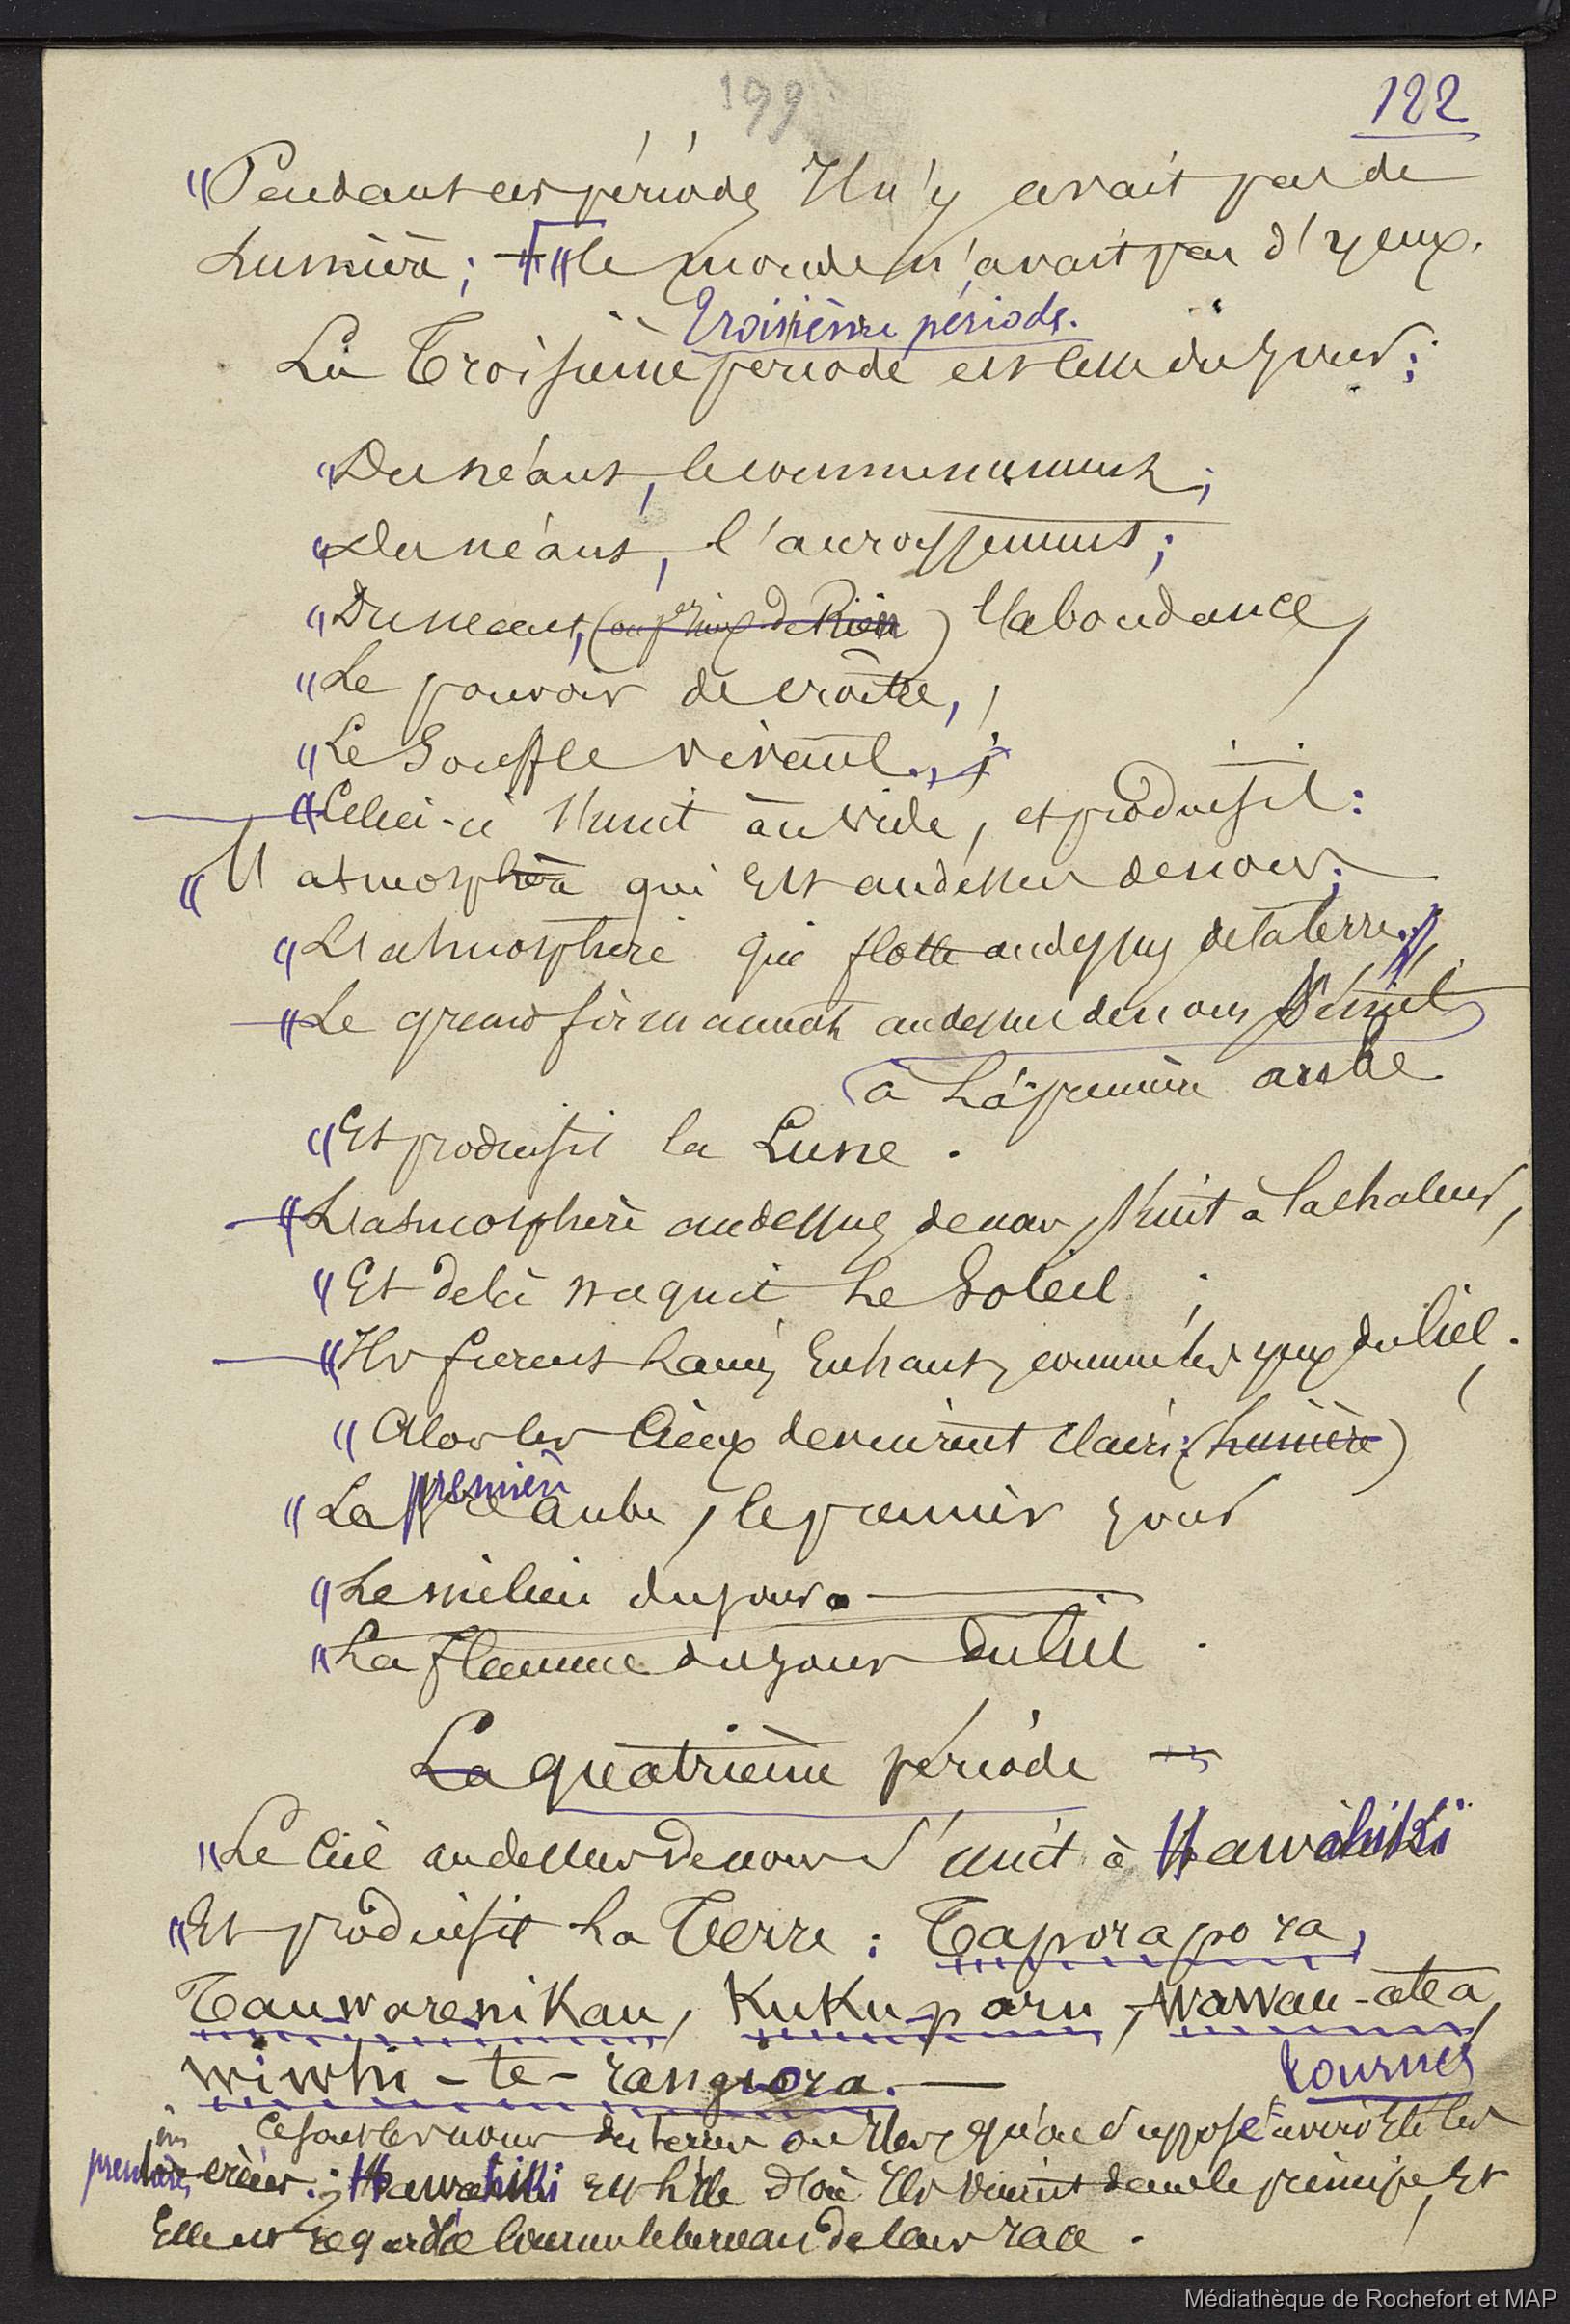 199
122
"Pendant ces périodes Il n'y avait pas de
Lumière ; "le monde n'avait pas d'yeux.
Troisième période.
La Troisième période est celle du jour :
"Du néant, le commencement ;
"Du néant, l'accroissement ;
"Du néant, (ou de Rien) l'abondance,
"Le pouvoir de croître, ;
"Le Souffle vivant. ;
"Celui-ci s'unit au vide, et produisit :
"L'atmosphère qui est au dessus de nous ;
"L'atmosphère qui flotte au dessus de la terre.
"Le grand firmament au dessus de nous s'unit
à La première aube
"Et produisit la Lune .
"L'atmosphère au dessus de nous s'unit à la chaleur,
"Et de là naquit Le Soleil ;
"Ils furent lancés En haut, comme les yeux du Ciel .
"Alors les Cieux devinrent clairs : (lumière)
"La première aube, le premier jour
"Le milieu du jour.
"La flamme du jour du Ciel .
La quatrième période
"Le Ciel au dessus de nous s'unit à Hawahiki
"Et produisit La Terre : Taporapora,
Tauwarenikau, Kukuparu, Wawau-atea,
Wiwhi-te-rangiora.
tournez
Ce sont les noms des terres ou Iles, qu'on suppose avoir Eté les
premières créées : Hawahiki est l'Ile d'où Ils vinrent dans le principe, Et
Elle est regardée comme le berceau de leur race .
Médiathèque de Rochefort et MAP